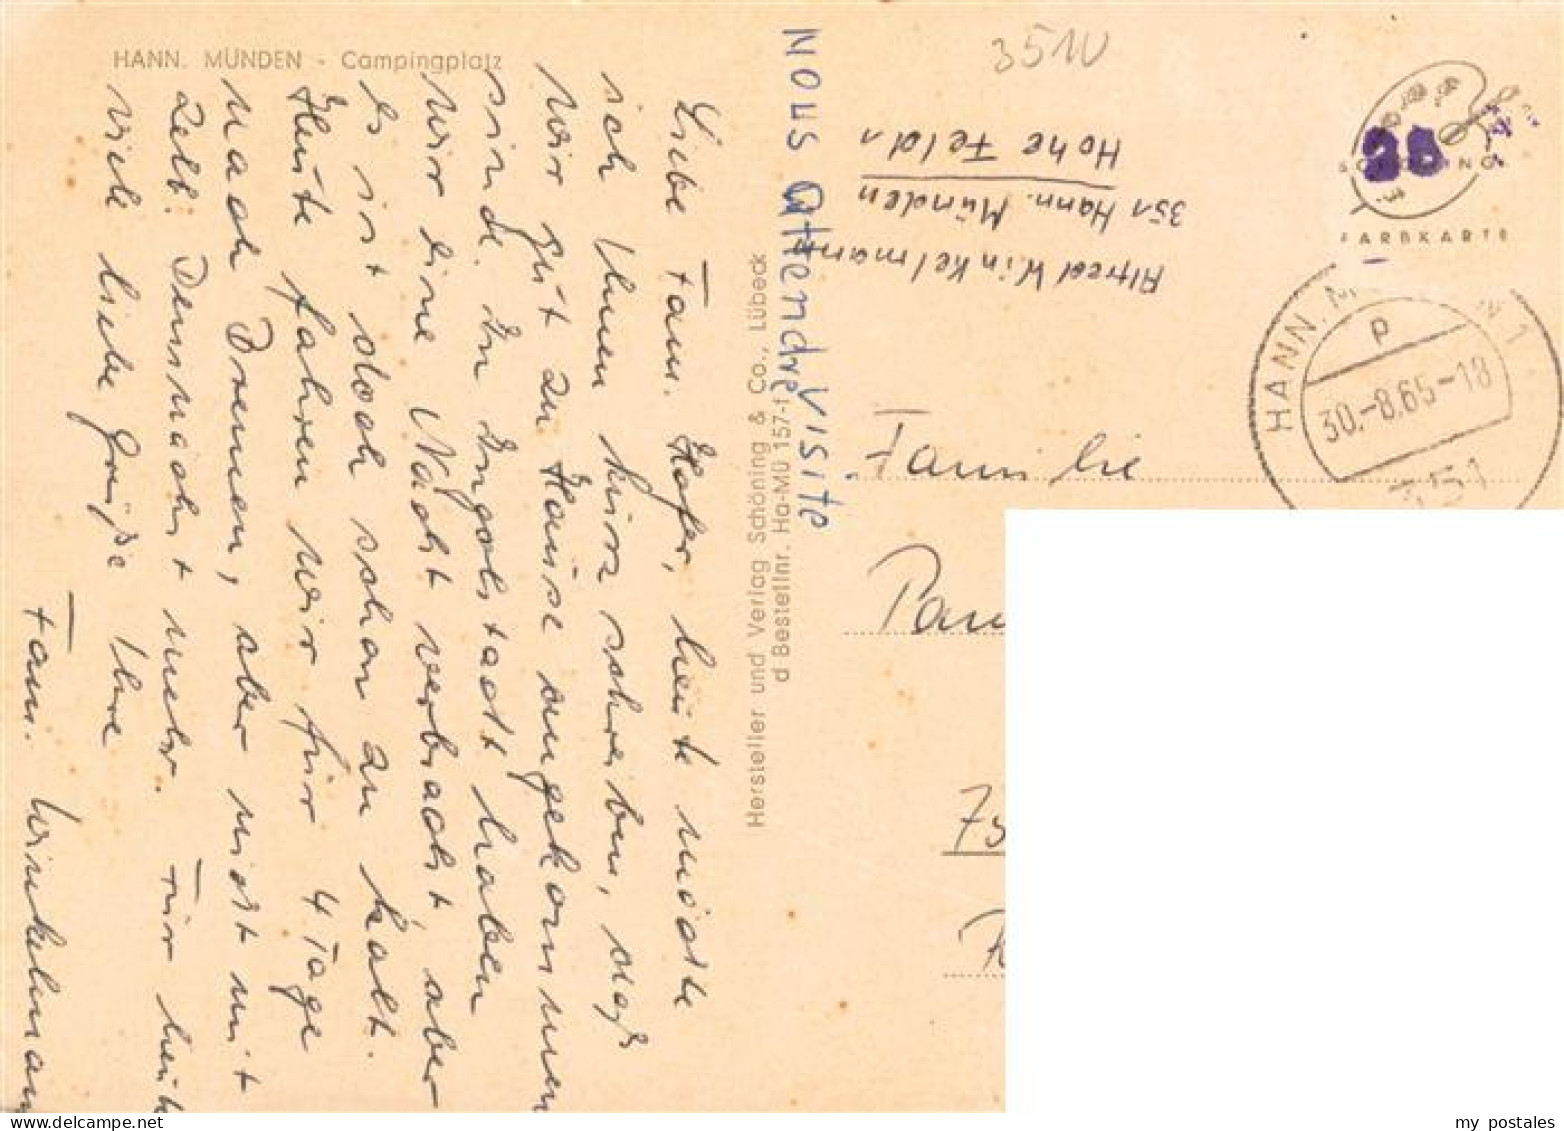 HANN. MÜNDEN - Campingplatz
Liebe Fam. Hofer, heute möchte
ich Ihnen kurz schreiben, daß
wir gut zu Hause angekommen
sind. In Ingolstadt haben
wir eine Nacht verbracht, aber
es ist doch schon zu kalt.
Heute fahren wir für 4 Tage
nach Bremen, aber nicht mit
Zelt. Demnächst mehr. Für heute
viele liebe Grüße Ihre
Fam. Winkelmann
Hersteller und Verlag Schöning & Co., Lübeck
d Bestellnr. Ha-Mü 157-1
NOUS Attendre VISITE
3510
Alfred Winkelmann
351 Hann. Münden
Hohe Feld 1
FARBKARTE
HANN. M N 1
p
30.-8.65-18
351
Familie